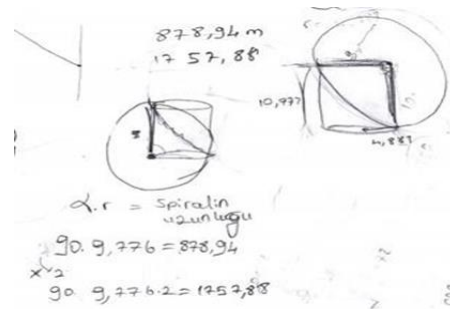 878,94 m
1757,88
10,977
4,889
α.r = spiralin
uzunluğu
90. 9,776 = 878,94
x 2
90. 9,776.2 = 1757,88